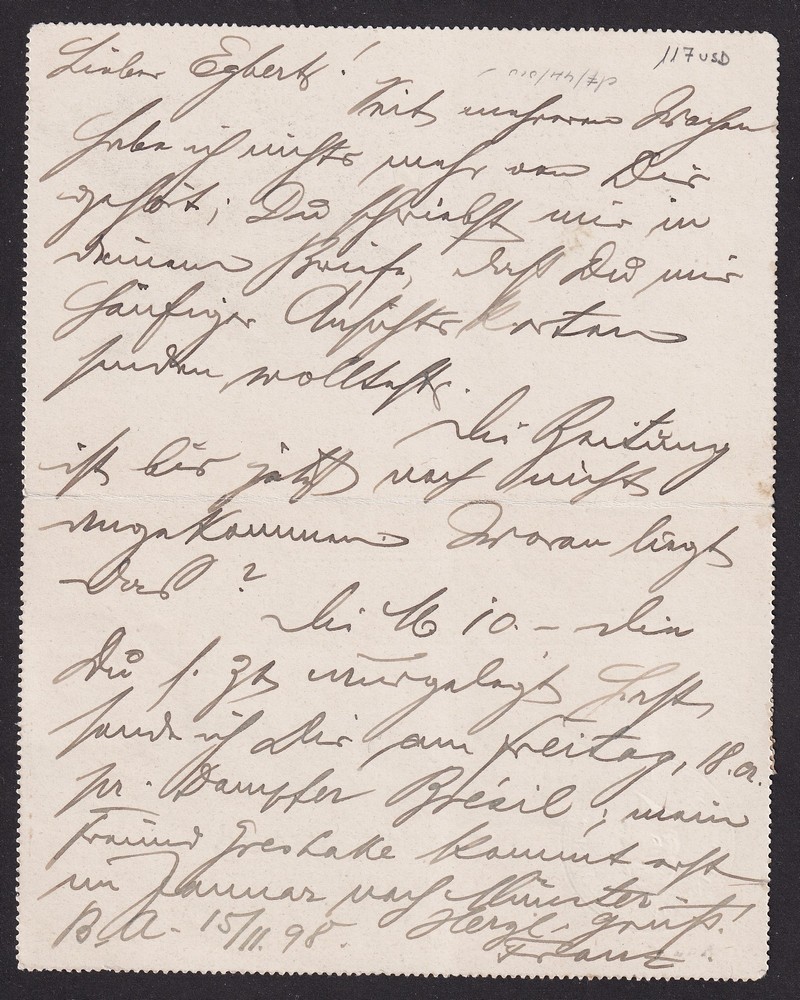 117 USD
Lieber Egbert!
Seit mehreren Wochen
habe ich nichts mehr von Dir
gehört; Du schriebst mir in
deinem Briefe, daß Du mir
häufiger Ansichtskarten
senden wolltest.
Die Zeitung
ist bis jetzt noch nicht
angekommen. Woran liegt
das?
Die M 10.- die
Du s. Zt ausgelegt hast,
sende ich Dir am Freitag, 18. a.
pr. Dampfer Brésil; mein
Freund Greshake kommt erst
im Januar nach Münster.
B. A. 15/11.98. Herzl. Gruß!
Franz